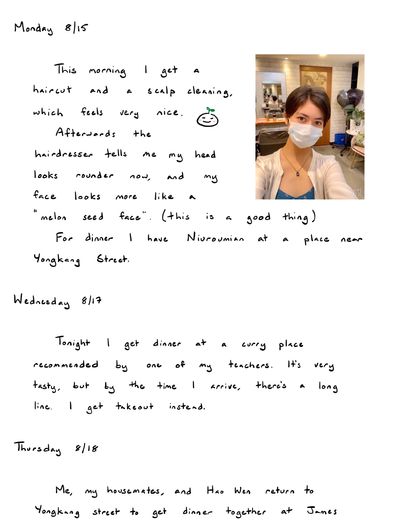 Monday 8/15
This morning I get a
haircut and a scalp cleaning,
which feels very nice.
Afterwards the
hairdresser tells me my head
looks rounder now, and my
face looks more like a
"melon seed face". (this is a good thing)
For dinner I have Niuroumian at a place near
Yongkang Street.
Wednesday 8/17
Tonight I get dinner at a curry place
recommended by one of my teachers. It's very
tasty, but by the time I arrive, there's a long
line. I get takeout instead.
Thursday 8/18
Me, my housemates, and Hao Wen return to
Yongkang street to get dinner together at James